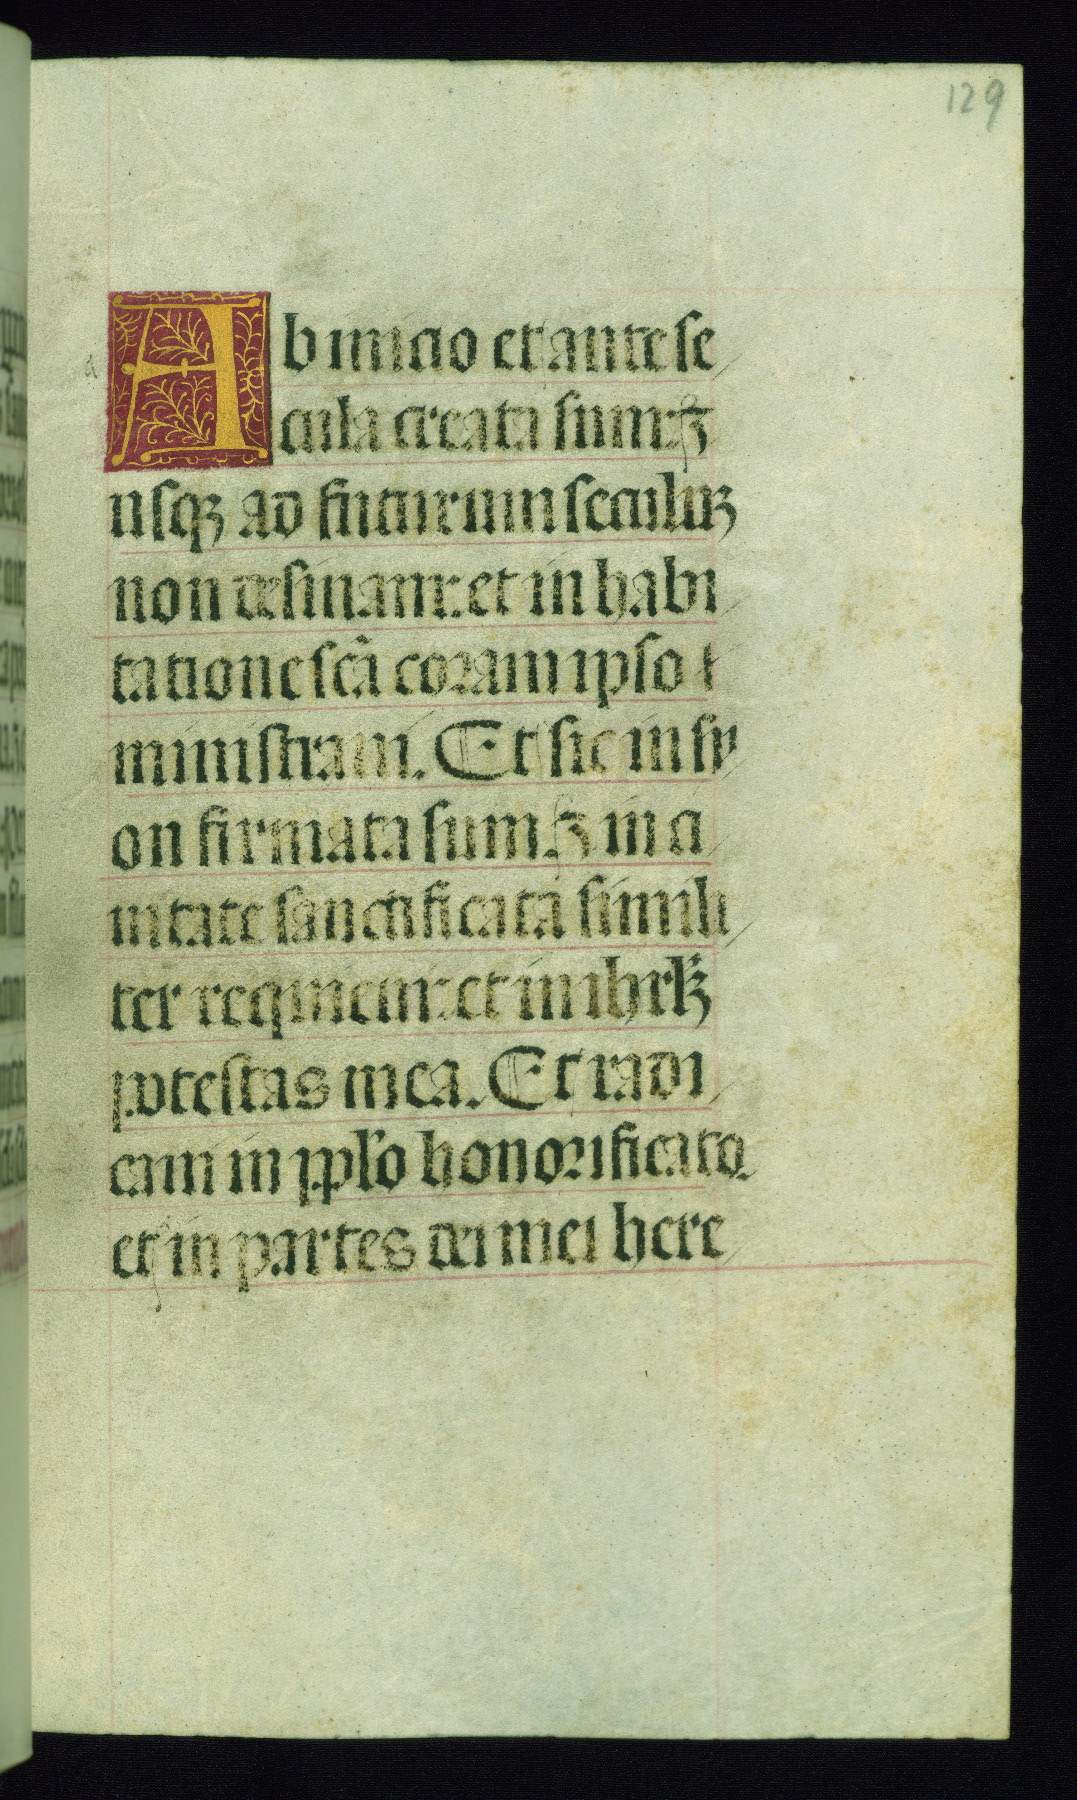 129
a
Ab inicio et ante se
cula creata sum: ⁊
usqꝫ ad futurum seculuꝫ
non desinam: et in habi
tatione scā coram ipso
ministraui. Et sic in sy
on firmata sum. ⁊ in ci
uitate sanctificata simili
ter requieui: et in ihrlꝫ
potestas mea. Et radi
caui in pplo honorificato
et in partes dei mei here